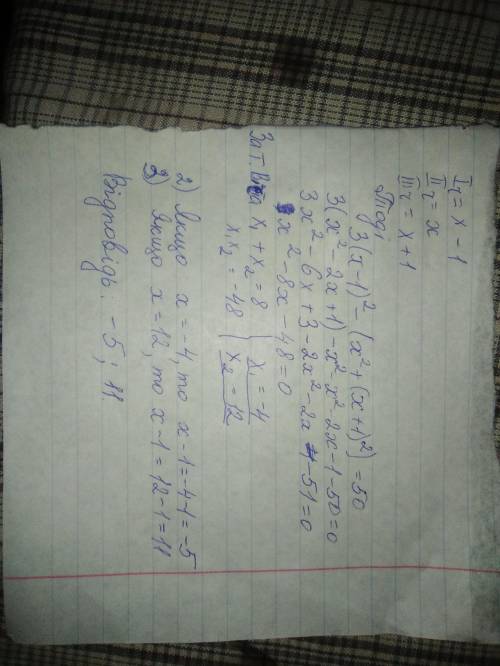 I ч = x - 1
II ч = x
III ч = x + 1
Тоді
3(x-1)² - (x² + (x+1)²) = 50
3(x² - 2x + 1) - x² - x² - 2x - 1 - 50 = 0
3x² - 6x + 3 - 2x² - 2x - 51 = 0
x² - 8x - 48 = 0
За т. Вієта x₁ + x₂ = 8 { x₁ = -4
x₁x₂ = -48 x₂ = 12
2) Якщо x = -4, то x - 1 = -4-1 = -5
3) Якщо x = 12, то x - 1 = 12 - 1 = 11
Відповідь: -5; 11.